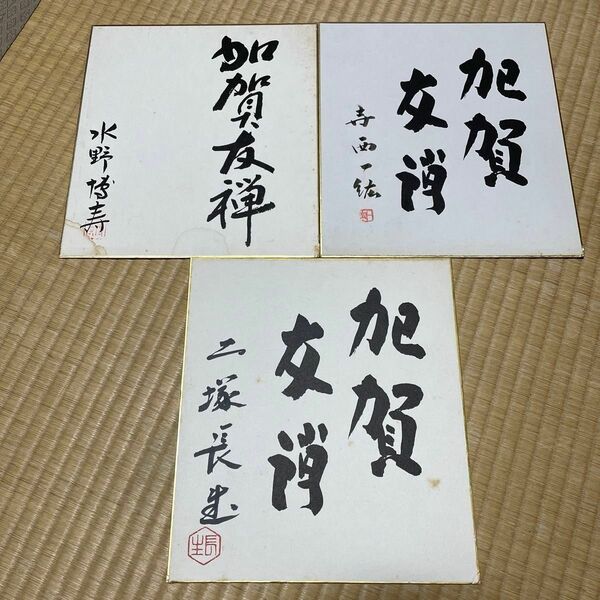 加賀友禅
水野博寿
加賀
友禅
寺西一紘
加賀
友禅
二塚長生
長生